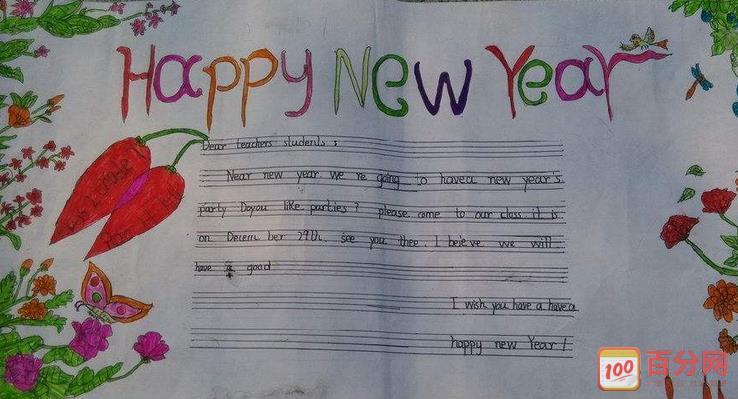 Happy New Year
Dear teachers students :
Near new year we re going to havea new year's
party Doyou like parties? please come to our class it is
on Decem ber 29th. see you thee. I beieve we will
have a good
I wish you have a havea
happy new Year!
100 百分网